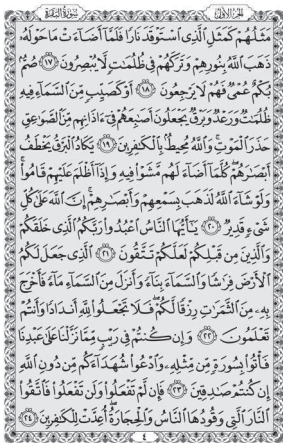 سُورَةُ البَقَرَةِ الجُزْءُ الأَوَّلُ
مَثَلُهُمْ كَمَثَلِ ٱلَّذِى ٱسْتَوْقَدَ نَارًا فَلَمَّآ أَضَآءَتْ مَا حَوْلَهُۥ
ذَهَبَ ٱللَّهُ بِنُورِهِمْ وَتَرَكَهُمْ فِى ظُلُمَٰتٍ لَّا يُبْصِرُونَ ١٧ صُمٌّۢ
بُكْمٌ عُمْىٌ فَهُمْ لَا يَرْجِعُونَ ١٨ أَوْ كَصَيِّبٍ مِّنَ ٱلسَّمَآءِ فِيهِ
ظُلُمَٰتٌ وَرَعْدٌ وَبَرْقٌ يَجْعَلُونَ أَصَٰبِعَهُمْ فِىٓ ءَاذَانِهِم مِّنَ ٱلصَّوَٰعِقِ
حَذَرَ ٱلْمَوْتِ ۚ وَٱللَّهُ مُحِيطٌۢ بِٱلْكَٰفِرِينَ ١٩ يَكَادُ ٱلْبَرْقُ يَخْطَفُ
أَبْصَٰرَهُمْ ۖ كُلَّمَآ أَضَآءَ لَهُم مَّشَوْا۟ فِيهِ وَإِذَآ أَظْلَمَ عَلَيْهِمْ قَامُوا۟ ۚ
وَلَوْ شَآءَ ٱللَّهُ لَذَهَبَ بِسَمْعِهِمْ وَأَبْصَٰرِهِمْ ۚ إِنَّ ٱللَّهَ عَلَىٰ كُلِّ
شَىْءٍ قَدِيرٌ ٢٠ يَٰٓأَيُّهَا ٱلنَّاسُ ٱعْبُدُوا۟ رَبَّكُمُ ٱلَّذِى خَلَقَكُمْ
وَٱلَّذِينَ مِن قَبْلِكُمْ لَعَلَّكُمْ تَتَّقُونَ ٢١ ٱلَّذِى جَعَلَ لَكُمُ
ٱلْأَرْضَ فِرَٰشًا وَٱلسَّمَآءَ بِنَآءً وَأَنزَلَ مِنَ ٱلسَّمَآءِ مَآءً فَأَخْرَجَ
بِهِۦ مِنَ ٱلثَّمَرَٰتِ رِزْقًا لَّكُمْ ۖ فَلَا تَجْعَلُوا۟ لِلَّهِ أَندَادًا وَأَنتُمْ
تَعْلَمُونَ ٢٢ وَإِن كُنتُمْ فِى رَيْبٍ مِّمَّا نَزَّلْنَا عَلَىٰ عَبْدِنَا
فَأْتُوا۟ بِسُورَةٍ مِّن مِّثْلِهِۦ وَٱدْعُوا۟ شُهَدَآءَكُم مِّن دُونِ ٱللَّهِ
إِن كُنتُمْ صَٰدِقِينَ ٢٣ فَإِن لَّمْ تَفْعَلُوا۟ وَلَن تَفْعَلُوا۟ فَٱتَّقُوا۟
ٱلنَّارَ ٱلَّتِى وَقُودُهَا ٱلنَّاسُ وَٱلْحِجَارَةُ ۖ أُعِدَّتْ لِلْكَٰفِرِينَ ٢٤
٤